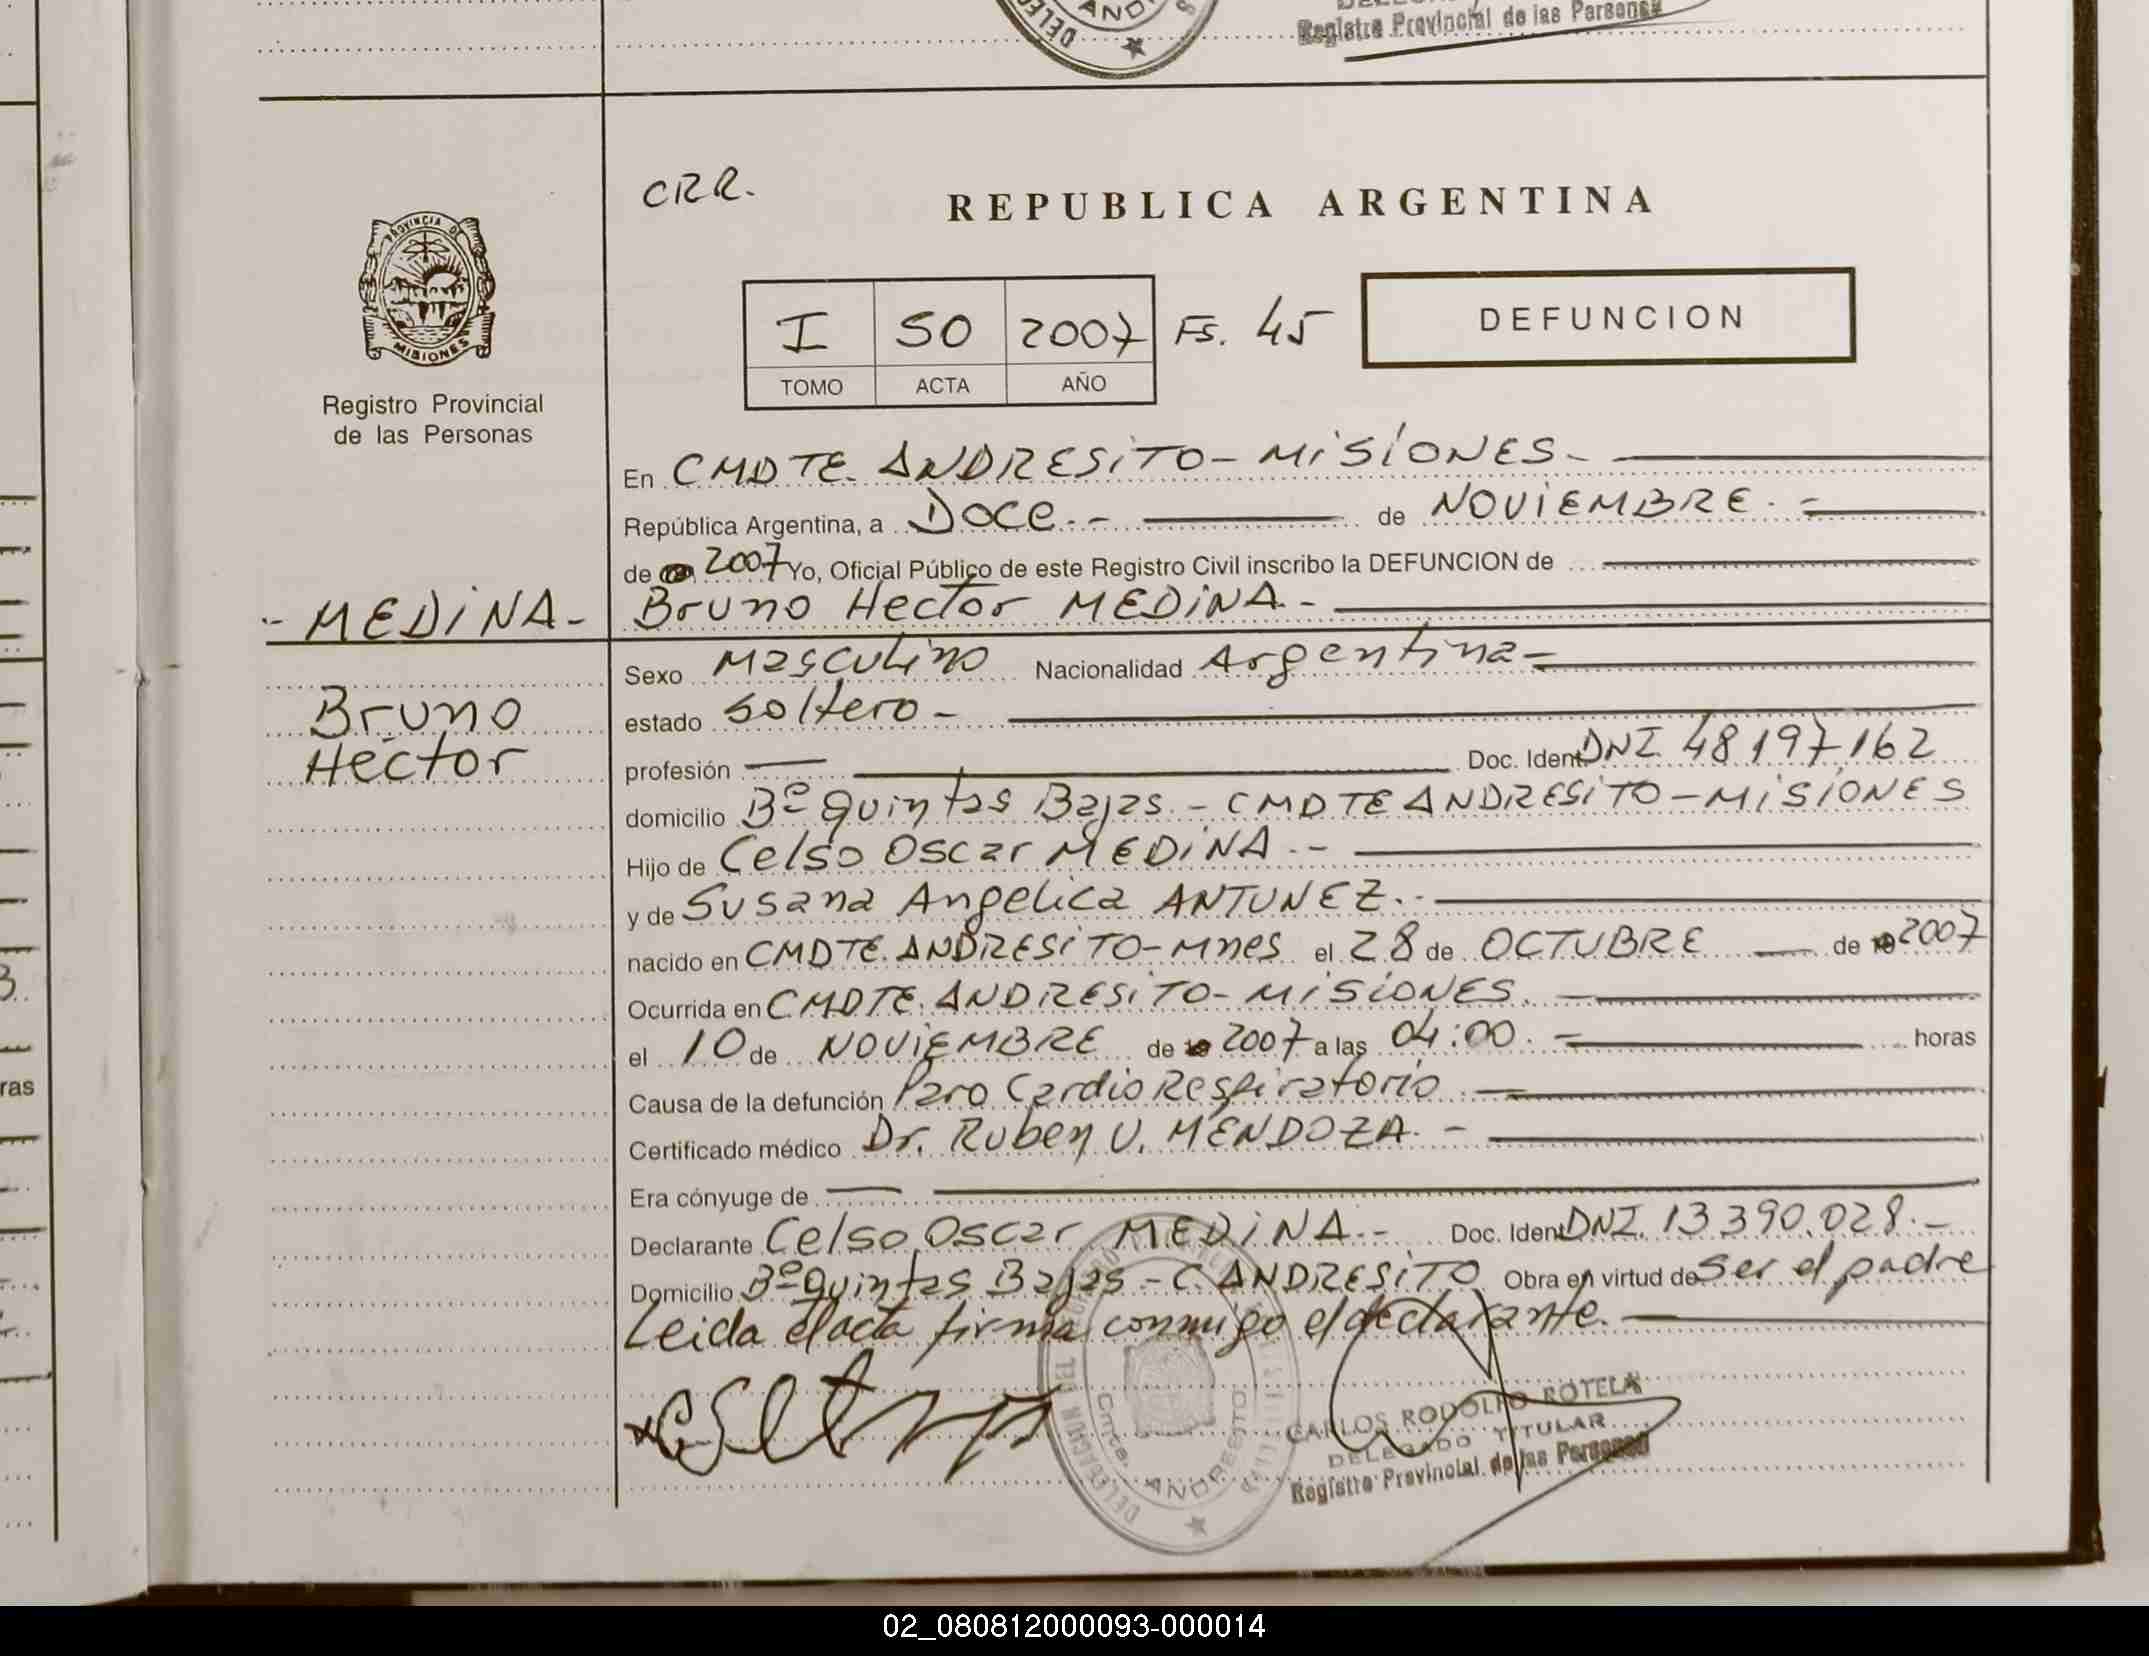 Registro Provincial de las Personas
CRR.
REPUBLICA ARGENTINA
PROVINCIA DE
MISIONES
I 50 2007 Fs. 45
TOMO ACTA AÑO
DEFUNCION
Registro Provincial
de las Personas
En CMDTE. ANDRESITO - MISIONES -
República Argentina, a Doce.- de NOVIEMBRE. -
de 2007 Yo, Oficial Público de este Registro Civil inscribo la DEFUNCION de
- MEDINA -
Bruno Hector MEDINA.-
Sexo Masculino Nacionalidad Argentina -
Bruno
Hector
estado Soltero -
profesión — Doc. Ident. DNI 48197.162
domicilio Bº Quintas Bajas. - CMDTE ANDRESITO - MISIONES
Hijo de Celso Oscar MEDINA.-
y de Susana Angelica ANTUNEZ.-
nacido en CMDTE. ANDRESITO - Mnes el 28 de OCTUBRE — de 2007
Ocurrida en CMDTE. ANDRESITO - MISIONES. -
el 10 de NOVIEMBRE de 2007 a las 04:00. - horas
Causa de la defunción Paro CardioRespiratorio. -
Certificado médico Dr. Ruben V. MENDOZA. -
Era cónyuge de —
Declarante Celso Oscar MEDINA.- Doc. Ident DNI. 13390.028.-
Domicilio Bº Quintas Bajas - C. ANDRESITO Obra en virtud de Ser el padre
Leida el acta firma conmigo el declarante.
CARLOS RODOLFO ROTELA
DELEGADO TITULAR
Registro Provincial de las Personas
Cmte. ANDRESITO
02_080812000093-000014